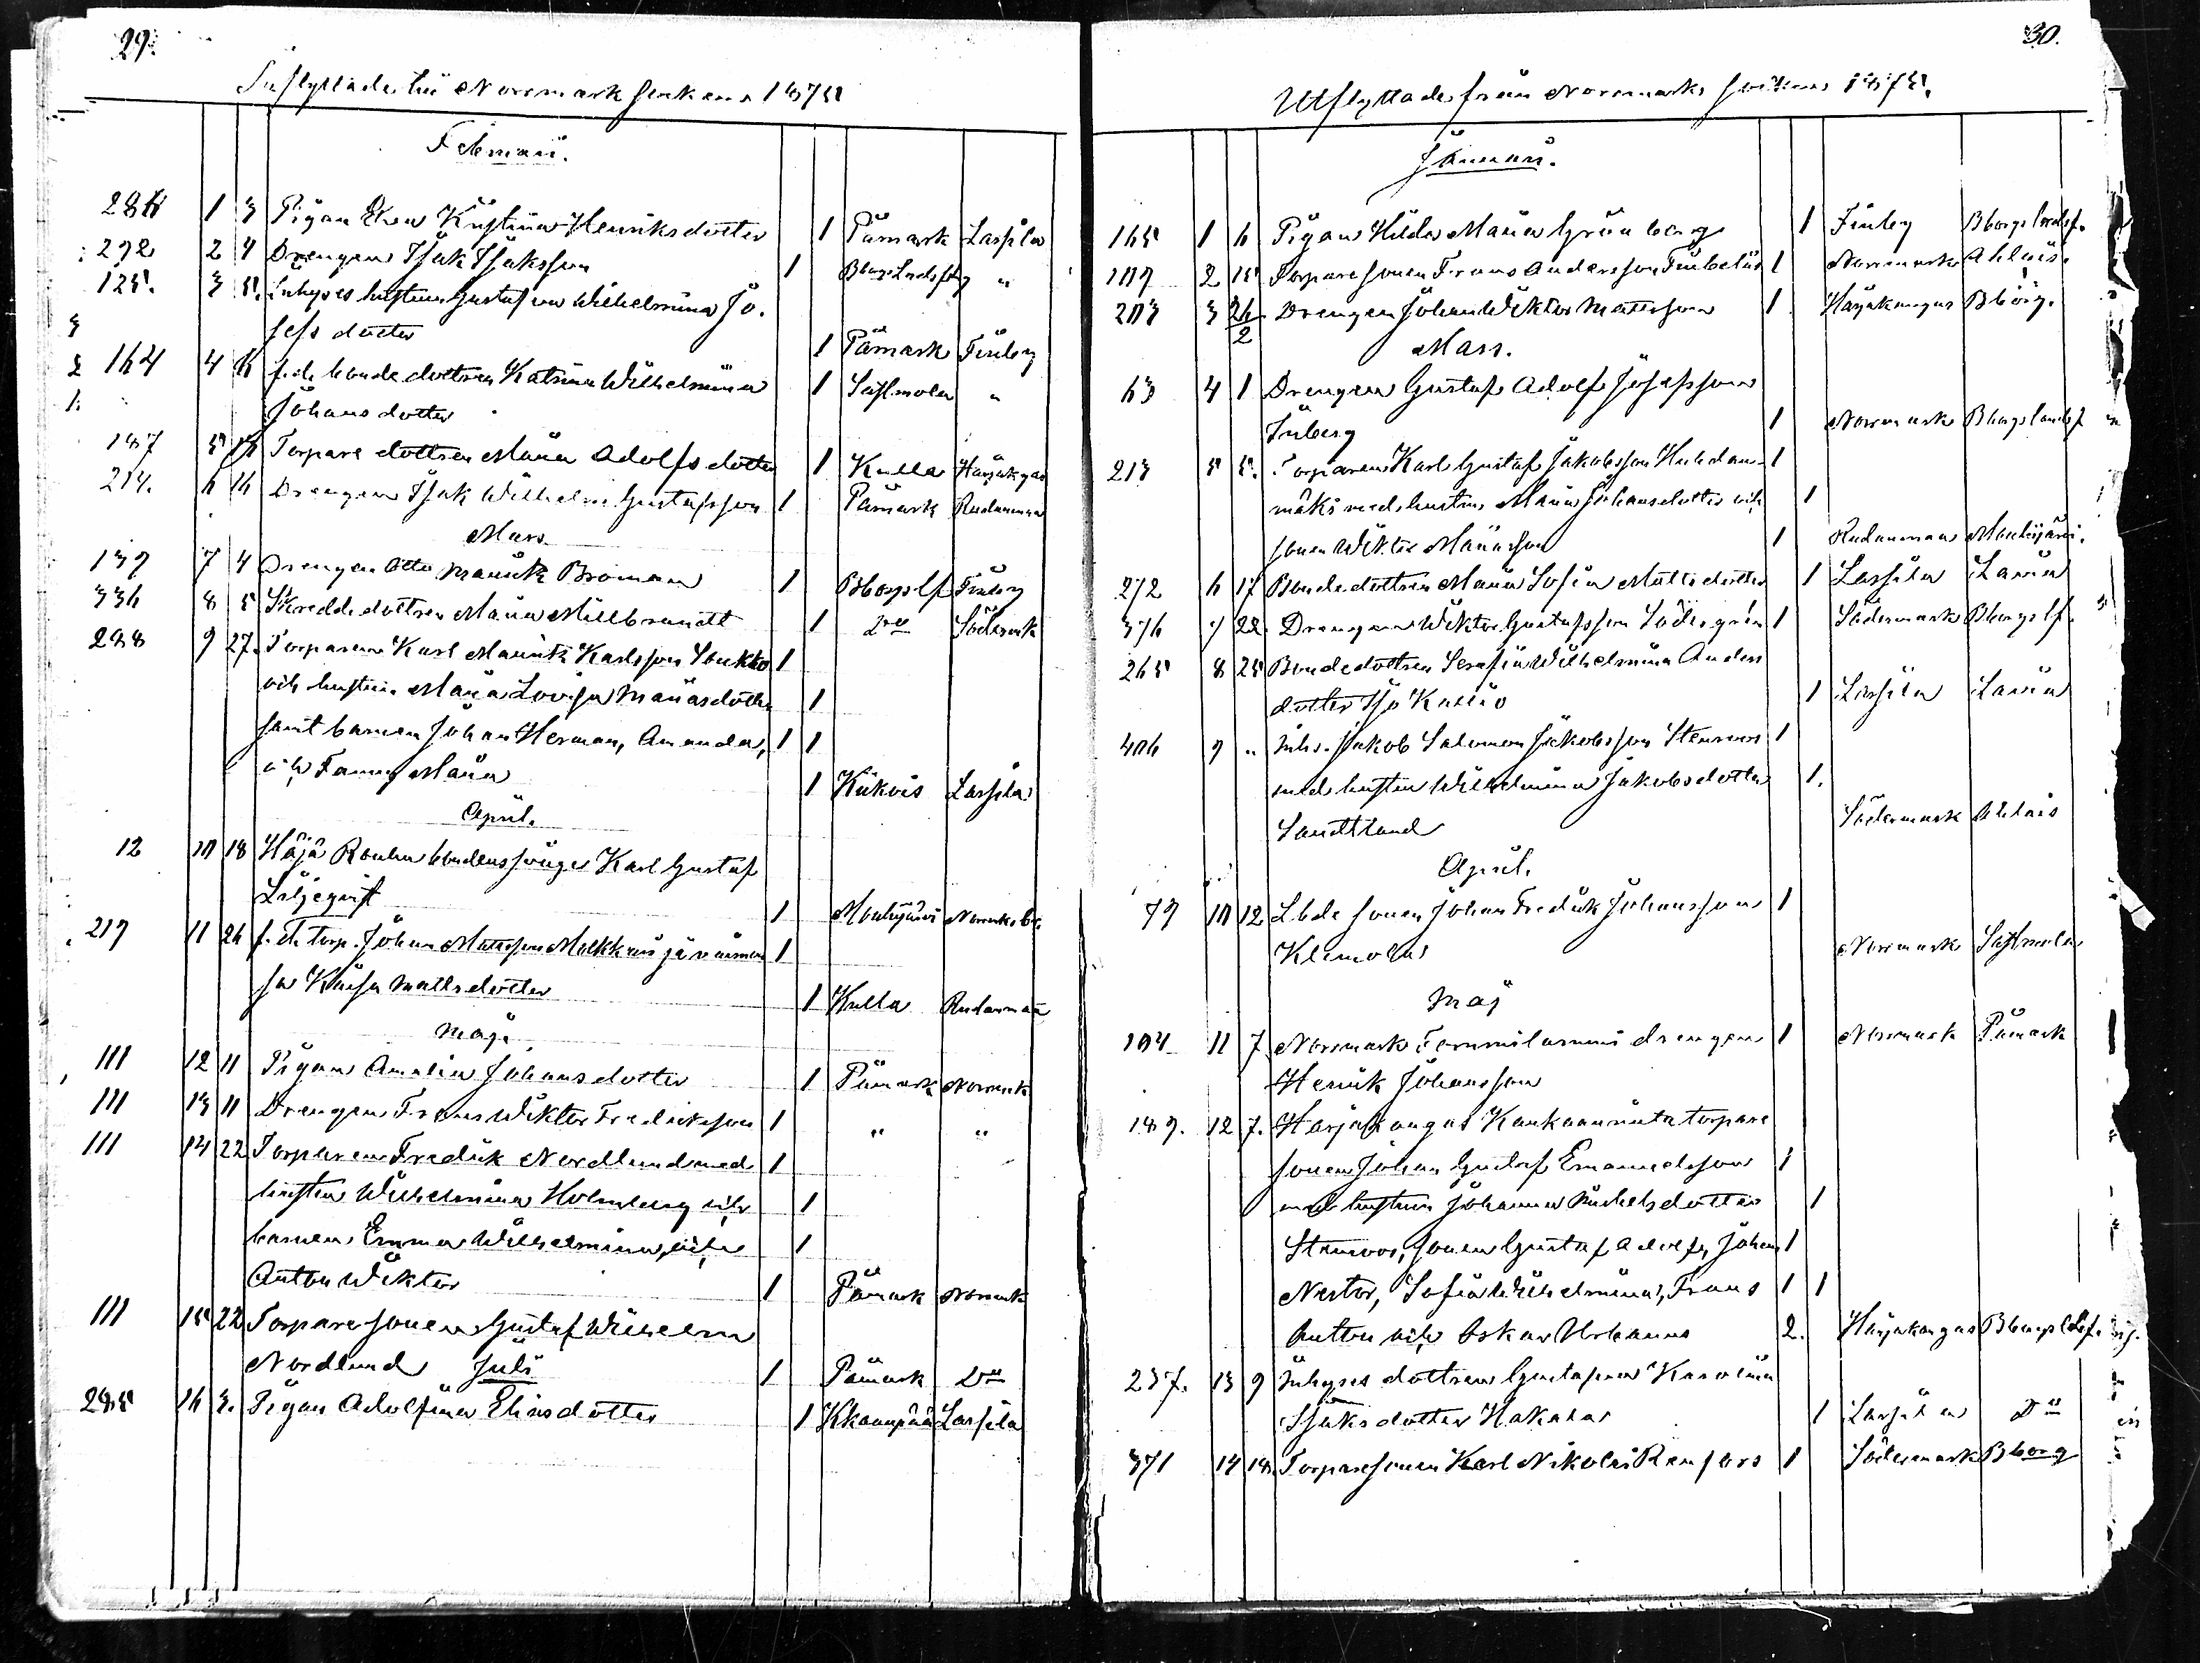 29.
Inflyttade till Norrmark socken 1875
Februari.
286 1 3 Pigan Eva Kristina Henriksdotter 1 Påmark Lassila
292 2 4 Drengen Isak Isaksson 1 Bborgs Landsfg "
125. 3 5. Inhyses hustrun Gustafva Wilhelmina Jo.
sefsdotter 1 Påmark Finby
164 4 6 f.d. bondedottren Katrina Wilhelmina
Johansdotter 1 Sastmola "
187 5 13 Torparedottren Maria Adolfsdotter 1 Kulla Harjakgas
214. 6 16 Drengen Isak Wilhelm Gustafsson 1 Påmark Rudanmaa
Mars.
139 7 4 Drengen Otto Mauritz Broman 1 Bborgs lf Finby
336 8 5 Skreddedottren Maria Millbrandt 1 Do Södermk
288 9 27. Torparen Karl Mauritz Karlsson 1
och hustrun Maria Lovisa Mariasdotter 1
samt barnen Johan Herman, Amanda, 1 1
och Fanny Maria 1 Kiikois Lassila
April.
12 10 18 Häjä Rouhu bondens Karl Gustaf
Liljeqvist 1 Mouhijärvi
219 11 26 f.d. torp. Johan Matsson 1
Kaisa Mattsdotter 1 Kulla Rudanmaa
Maj.
111 12 11 Pigan Amalia Johansdotter 1 Påmark Norrmk
111 13 11 Drengen Frans Wiktor Fredriksson 1 " "
111 14 22 Torparen Fredrik Nordlund med 1
hustrun Wilhelmina Holmberg och 1
barnen Emma Wilhelmina, och 1
Anton Wiktor 1 Påmark Norrmk
111 15 22 Torparesonen Gustaf Wilhelm
Nordlund 1 Påmark Do
Juli
285 16 3. Pigan Adolfina Eliasdotter 1 Kkaanpää Lassila
30.
Utflyttade från Norrmarks socken 1875.
Januari.
165 1 6 Pigan Hilda Maria Grönberg 1 Finby Bborgs landsf.
109 2 15 Torparesonen Frans Andersson 1 Norrmark Ahlais.
203 3 26/2 Drengen Johan Wiktor Matsson 1 Harjakangas Bborg.
Mars.
63 4 1 Drengen Gustaf Adolf Josefsson
Inberg 1 Norrmark Bborgs landsf
213 5 5. Torparen Karl Gustaf Jakobsson Huhdan- 1
mäki med hustru Maria Johansdotter och 1
sonen Wiktor Mariasson 1 Rudanmaa Mouhijärvi.
272 6 17 Bondedottren Maria Sofia Mattsdotter 1 Lassila Lavia
376 7 22. Drengen Wiktor Gustafsson Södergrén 1 Södermark Bborgs lf.
265 8 25 Bondedottren Serafia Wilhelmina Anders
dotter Iso Kallio 1 Lassila Lavia
406 9 " Inhs. Jakob Salomon Jakobsson Stenroos 1
med hustru Wilhelmina Jakobsdotter 1.
Sandstrand Södermark Ahlais
April.
79 10 12 Lbde sonen Johan Fredrik Johansson 1
Klemola Norrmark Sastmola
Maj
104 11 7 Norrmark drengen 1 Norrmark Påmark
Henrik Johansson
189. 12 7. Harjakangas torpare
sonen Johan Gustaf Emanuelsson 1
med hustrun Johanna Mickelsdotter 1
Stenroos, sonen Gustaf Adolf, Johan 1
Nestor, Sofia Wilhelmina, Frans 1 1
Anton och Oskar Urbanus 2. Harjakangas Bborgs ldsf.
237. 13 9 Inhyses dottren Gustafva Karolina
Isaksdotter Hakala 1 Lassila Do
371 14 18. Torparesonen Karl Nikolai Renfors 1 Södermark Bborg